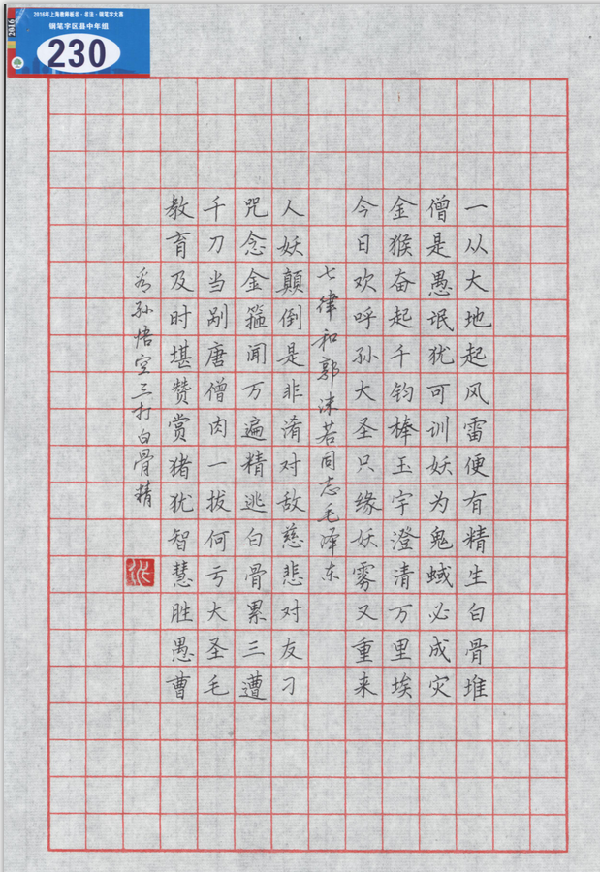 2016
钢笔字区县中年组
230
一从大地起风雷便有精生白骨堆
僧是愚氓犹可训妖为鬼蜮必成灾
金猴奋起千钧棒玉宇澄清万里埃
今日欢呼孙大圣只缘妖雾又重来
七律和郭沫若同志毛泽东
人妖顛倒是非淆对敌慈悲对友刁
咒念金箍闻万遍精逃白骨累三遭
千刀当剐唐僧肉一拔何亏大圣毛
教育及时堪赞赏猪犹智慧胜愚曹
看孙悟空三打白骨精